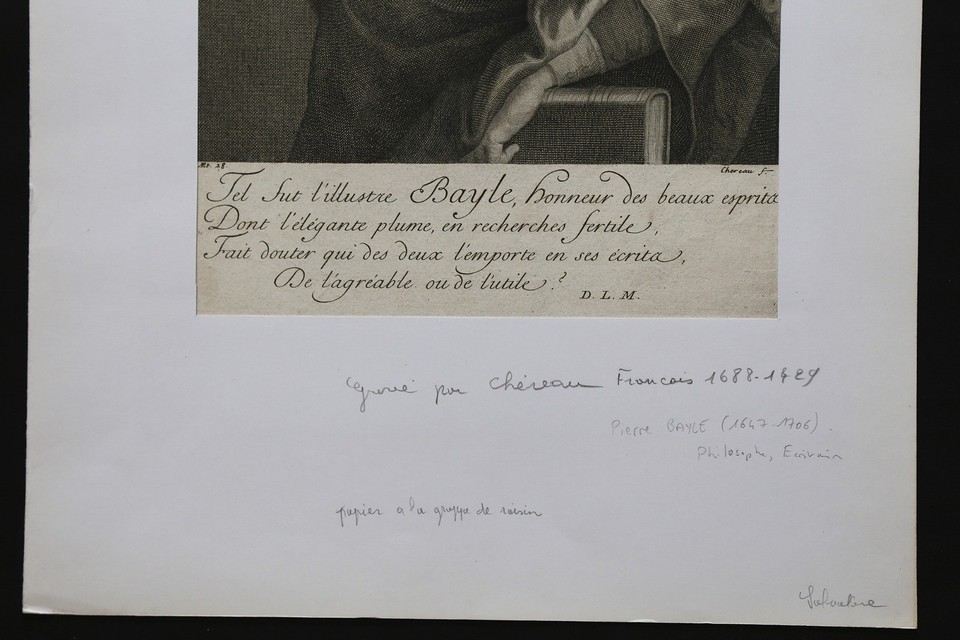 Chereau f.
Tel fut l'illustre Bayle, honneur des beaux esprits
Dont l'élégante plume, en recherches fertile,
Fait douter qui des deux l'emporte en ses écrits,
De l'agréable ou de l'utile?
D. L. M.
Gravé par Chéreau Francois 1688-1729
Pierre BAYLE (1647-1706).
Philosophe, Ecrivain
papier a la grappe de raisin